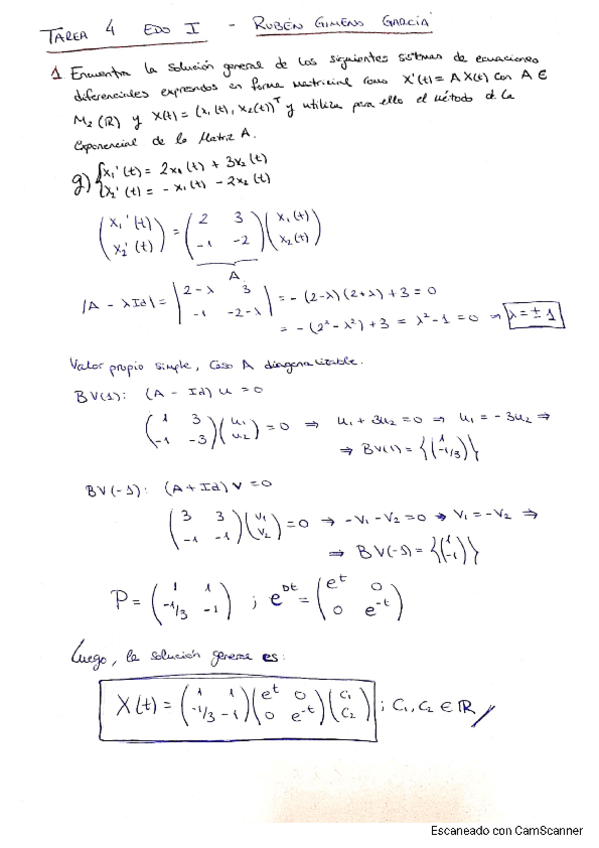 TAREA 4 EDO I - RUBÉN GIMENO GARCÍA
1 Encuentra la solución general de los siguientes sistemas de ecuaciones
diferenciales expresados en forma matricial como X'(t) = A X(t) con A ∈
M₂(ℝ) y X(t) = (x₁(t), x₂(t))ᵀ y utiliza para ello el método de la
exponencial de la Matriz A.
g) { x₁'(t) = 2x₁(t) + 3x₂(t)
x₂'(t) = - x₁(t) - 2x₂(t)
(x₁'(t) x₂'(t)) = (2 3 -1 -2) (x₁(t) x₂(t))
A
|A - λId| = |2-λ 3 -1 -2-λ| = -(2-λ)(2+λ) + 3 = 0
= -(2² - λ²) + 3 = λ² - 1 = 0 ⇒ λ = ± 1
Valor propio simple, Caso A diagonalizable.
BV(1): (A - Id) u = 0
(1 3 -1 -3) (u₁ u₂) = 0 ⇒ u₁ + 3u₂ = 0 ⇒ u₁ = -3u₂ ⇒
⇒ BV(1) = {(1 -1/3)}
BV(-1): (A + Id) v = 0
(3 3 -1 -1) (v₁ v₂) = 0 ⇒ -v₁ - v₂ = 0 ⇒ v₁ = -v₂ ⇒
⇒ BV(-1) = {(1 -1)}
P = (1 1 -1/3 -1) ; e^Dt = (e^t 0 0 e^-t)
Luego, la solución general es:
X(t) = (1 1 -1/3 -1) (e^t 0 0 e^-t) (C₁ C₂) ; C₁, C₂ ∈ ℝ
Escaneado con CamScanner